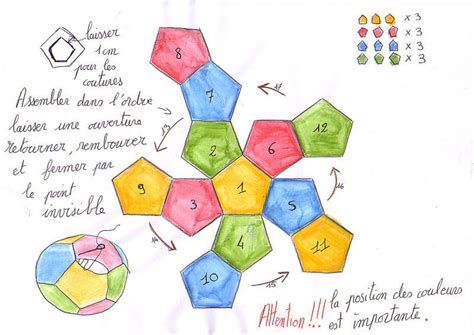 laisser
1cm
pour les
coutures
Assembler dans l'ordre
laisser une ouverture
retourner, rembourer
et fermer par
le point
invisible
x 3
x 3
x 3
x 3
8
7
17
12
2
6
13
9
3
1
5
16
4
14
10
15
11
Attention!!! la position des couleurs
est importante.